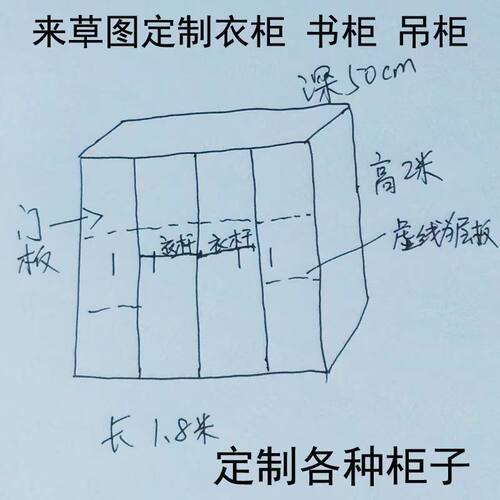 来草图定制衣柜 书柜 吊柜
深50cm
高2米
门板
衣杆 衣杆
虚线为层板
长 1.8米
定制各种柜子